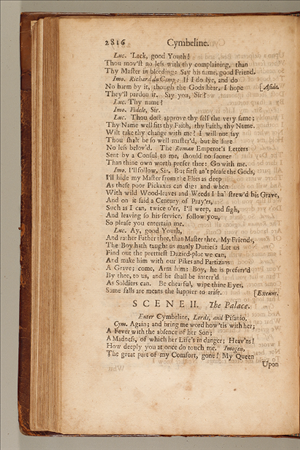 2816 Cymbeline.
Luc. 'Lack, good Youth!
Thou mov'st no less with thy complaining, than
Thy Master in bleeding: Say his name, good Friend.
Imo. Richard du Camp: If I do lye, and do
No harm by it, though the Gods hear, I hope [Aside.
They'll pardon it. Say you, Sir?
Luc. Thy name?
Imo. Fidele, Sir.
Luc. Thou dost approve thy self the very same;
Thy Name well fits thy Faith, thy Faith, thy Name.
Wilt take thy chance with me? I will not say
Thou shalt be so well master'd, but be sure
No less belov'd. The Roman Emperor's Letters
Sent by a Consul to me, should no sooner
Than thine own worth prefer thee: Go with me.
Imo. I'll follow, Sir. But first an't please the Gods,
I'll hide my Master from the Flies as deep
As these poor Pickaxes can dig: and when
With wild Wood-leaves and Weeds I ha' strew'd his Grave,
And on it said a Century of Pray'rs,
Such as I can, twice o'er, I'll weep, and sigh,
And leaving so his service, follow you,
So please you entertain me.
Luc. Ay, good Youth,
And rather Father thee, than Master thee. My Friends,
The Boy hath taught us manly Duties: Let us
Find out the prettiest Dazied-plot we can,
And make him with our Pikes and Partizans
A Grave; come, Arm him: Boy, he is preferr'd
By thee, to us, and he shall be interr'd
As Soldiers can. Be chearful, wipe thine Eyes,
Some falls are means the happier to arise. [Exeunt.
SCENE II. The Palace.
Enter Cymbeline, Lords, and Pisanio.
Cym. Again; and bring me word how 'tis with her;
A Fever with the absence of her Son;
A Madness, of which her Life's in danger; Heav'ns!
How deeply you at once do touch me. Imogen,
The great part of my Comfort, gone! My Queen
Upon